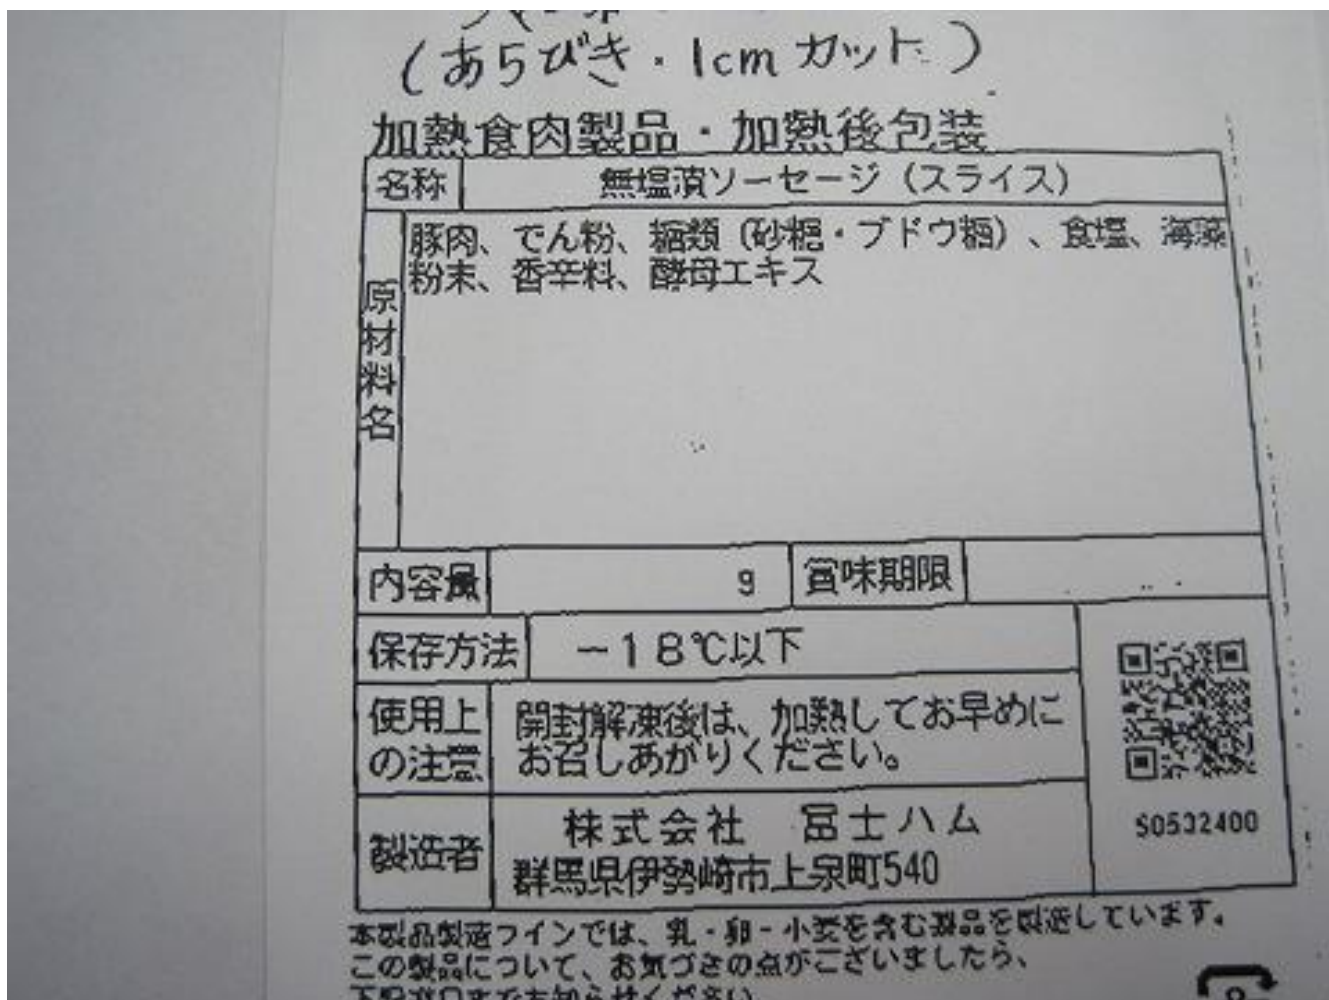 (あらびき・1cmカット)
加熱食肉製品・加熱後包装
名称 無塩漬ソーセージ(スライス)
原材料名 豚肉、でん粉、糖類(砂糖・ブドウ糖)、食塩、海藻
粉末、香辛料、酵母エキス
内容量 g 賞味期限
保存方法 -18℃以下
使用上の注意 開封解凍後は、加熱してお早めに
お召しあがりください。
製造者 株式会社 冨士ハム
群馬県伊勢崎市上泉町540
S0532400
本製品製造ラインでは、乳・卵・小麦を含む製品を製造しています。
この製品について、お気づきの点がございましたら、
下記窓口までお知らせください